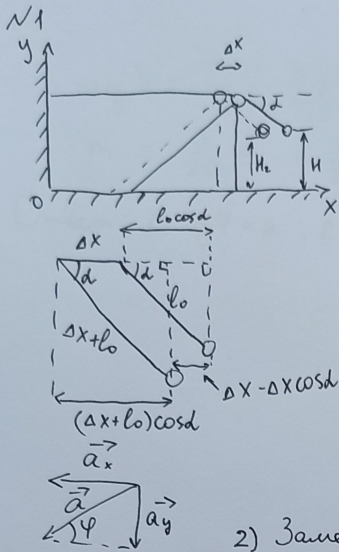 №1
y
Δx
α
H₂
H
0
x
l₀cosα
Δx
α
α
l₀
Δx+l₀
Δx - Δxcosα
(Δx+l₀)cosα
a⃗ₓ
a⃗
φ
a⃗ᵧ
2) Заме